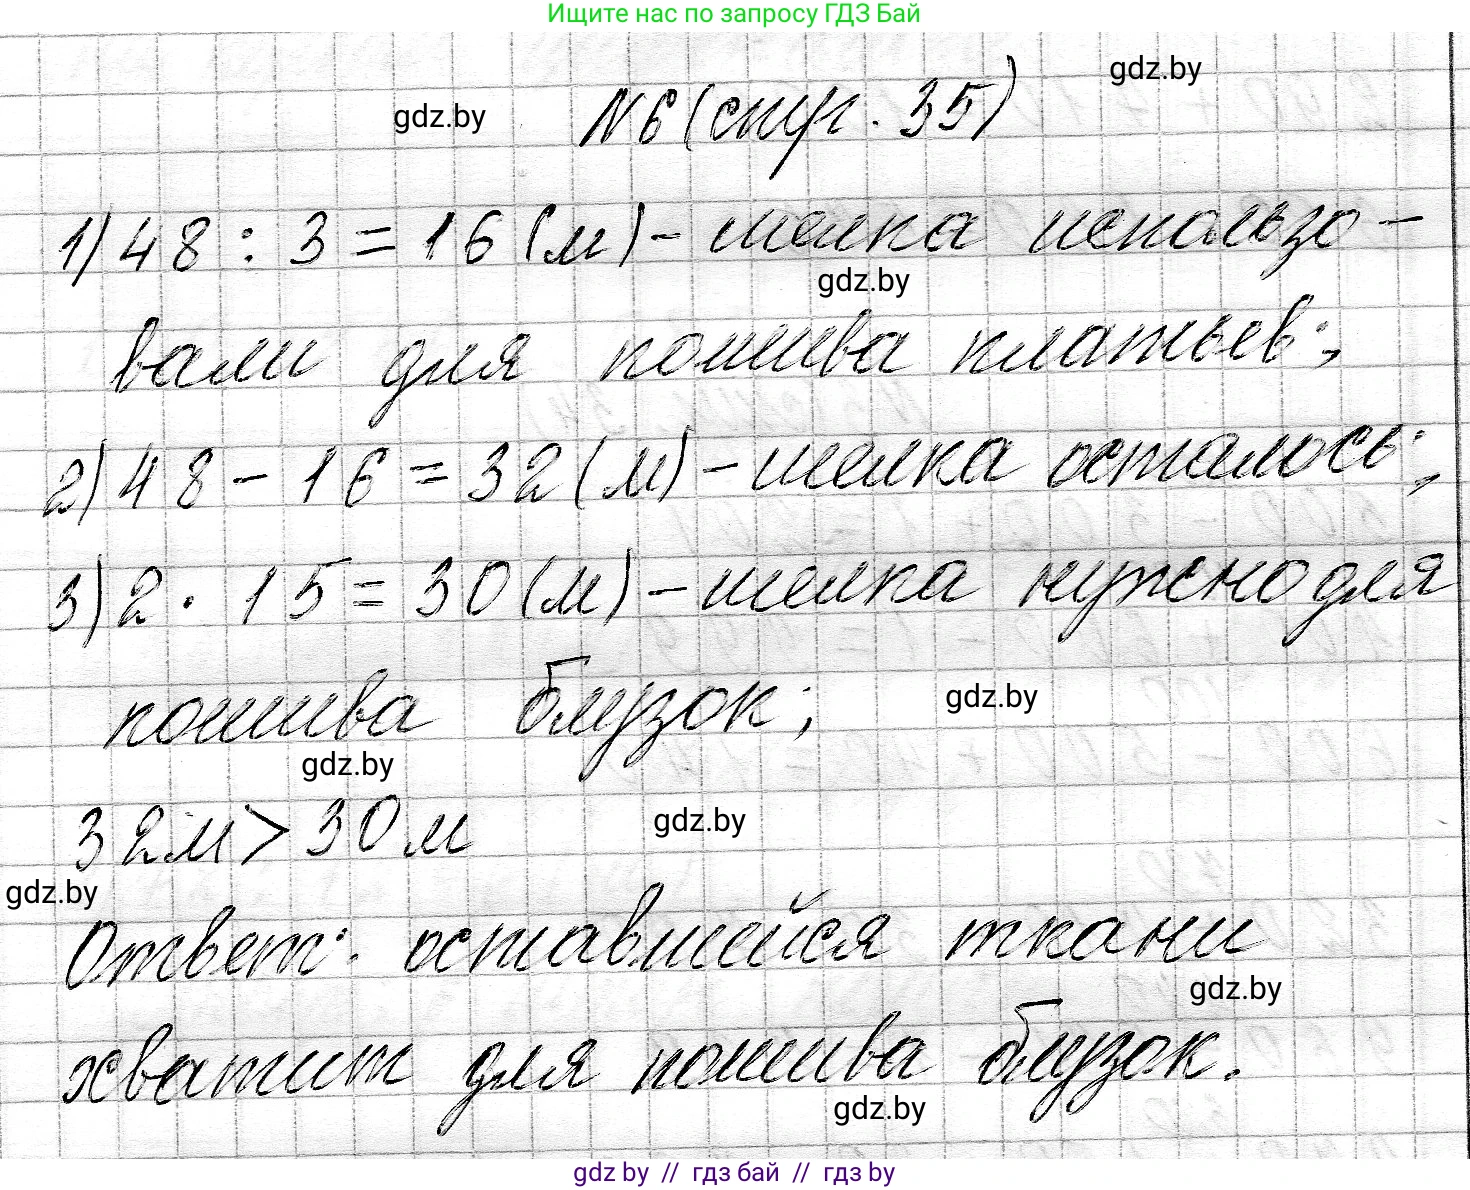 Ищите нас по запросу ГДЗ Бай
gdz.by
gdz.by
№6 (стр. 35)
1) 48 : 3 = 16 (м) - шелка использо-
gdz.by
вали для пошива платьев;
2) 48 - 16 = 32 (м) - шелка осталось;
3) 2 · 15 = 30 (м) - шелка нужно для
пошива блузок;
gdz.by
gdz.by
32м > 30 м
gdz.by
gdz.by
Ответ: оставшейся ткани
gdz.by
хватит для пошива блузок.
gdz.by
gdz by // гдз бай // гдз by